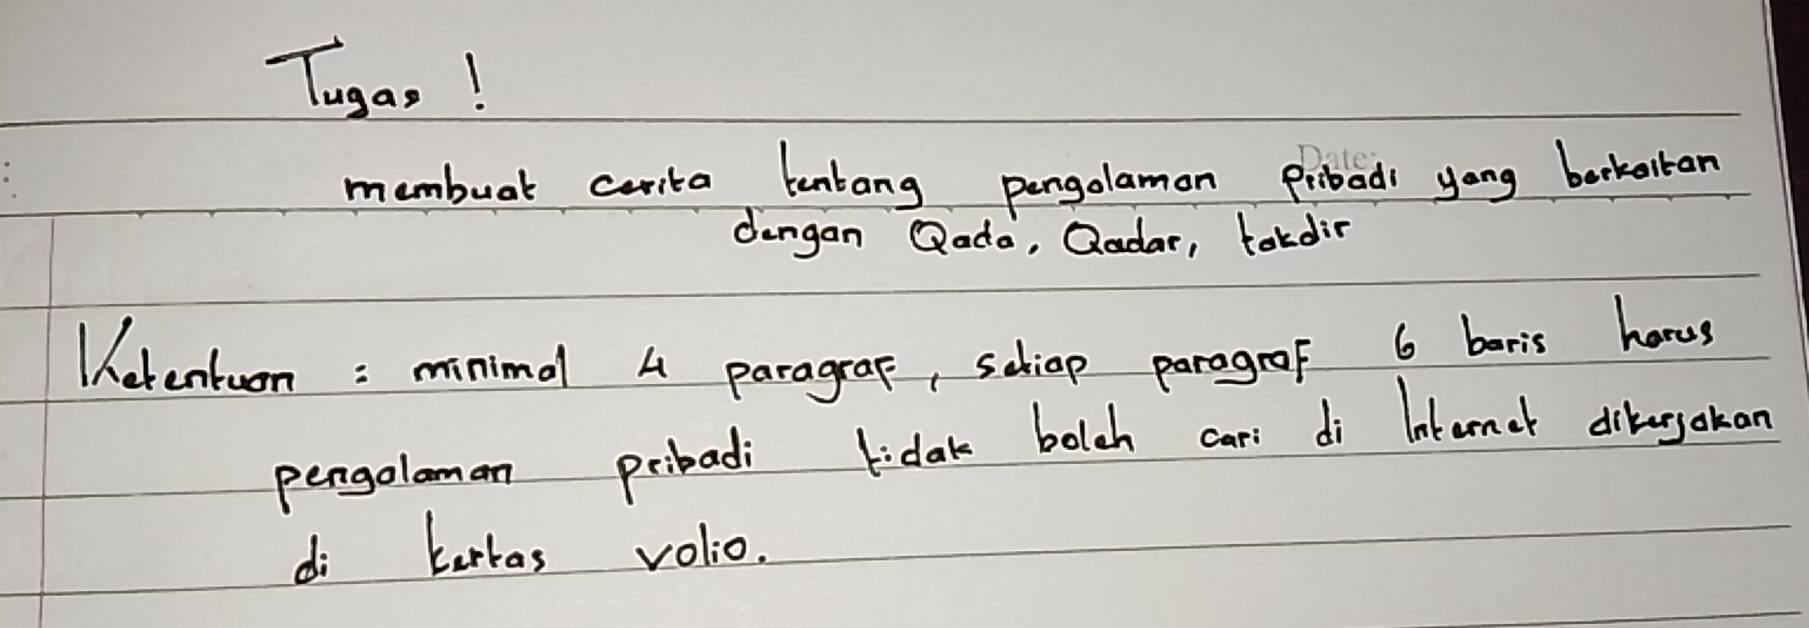 Tugas !
Date:
membuat cerita tentang pengalaman pribadi yang berkaitan
dengan Qada, Qadar, takdir
Ketentuan : minimal 4 paragraf, setiap paragraf 6 baris harus
pengalaman pribadi tidak boleh cari di Internet dikerjakan
di kertas volio.